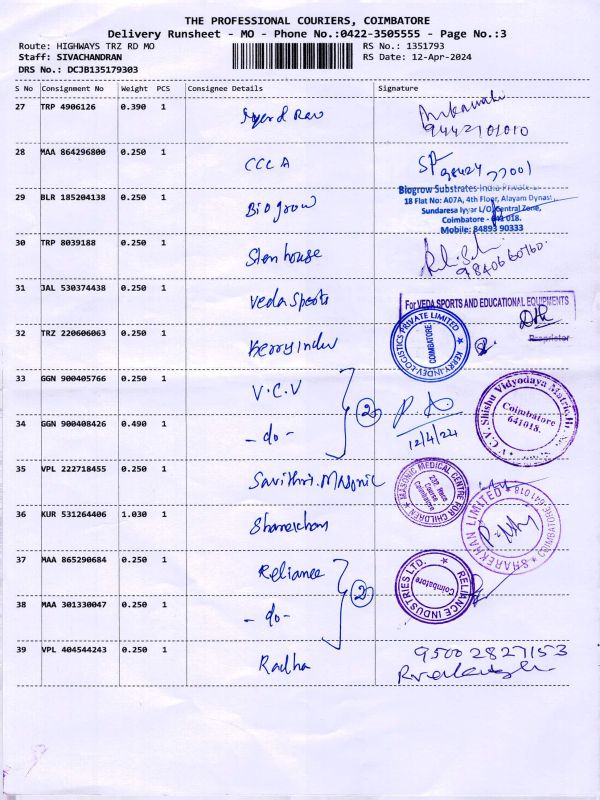 THE PROFESSIONAL COURIERS, COIMBATORE
Delivery Runsheet - MO - Phone No.:0422-3505555 - Page No.:3
Route: HIGHWAYS TRZ RD MO
RS No.: 1351793
Staff: SIVACHANDRAN
RS Date: 12-Apr-2024
DRS No.: DCJB135179303
S No Consignment No Weight PCS Consignee Details Signature
27 TRP 4906126 0.390 1
9442101010
28 MAA 864296800 0.250 1 CCCA
29 BLR 185204138 0.250 1 Biogrow
Biogrow Substrates India Private
18 Flat No: A07A, 4th Floor, Alayam Dynast
Sundaresa Iyyar L/O, Central Zone,
Coimbatore - 641 018.
Mobile: 84893 90333
30 TRP 8039188 0.250 1 Sten house
9840660760.
31 JAL 530374438 0.250 1 Veda Sports
For VEDA SPORTS AND EDUCATIONAL EQUIPMENTS
Proprietor
32 TRZ 220606063 0.250 1 Kerry Indev
KERRY INDEV LOGISTICS PRIVATE LIMITED
COIMBATORE
33 GGN 900405766 0.250 1 V.C.V
2
12/4/24
C.V. Shishu Vidyodaya Matric.Hr.
Coimbatore
641018.
34 GGN 900408426 0.490 1 - do -
35 VPL 222718455 0.250 1 Savithri. Masonic
MASONIC MEDICAL CENTRE FOR CHILDREN
Race
Course
Coimbatore
36 KUR 531264406 1.030 1 Sharekhan
SHAREKHAN LIMITED
COIMBATORE-641 018
37 MAA 865290684 0.250 1 Reliance
2
RELIANCE INDUSTRIES LTD.
Coimbatore
38 MAA 301330047 0.250 1 - do -
39 VPL 404544243 0.250 1 Radha
95002827153